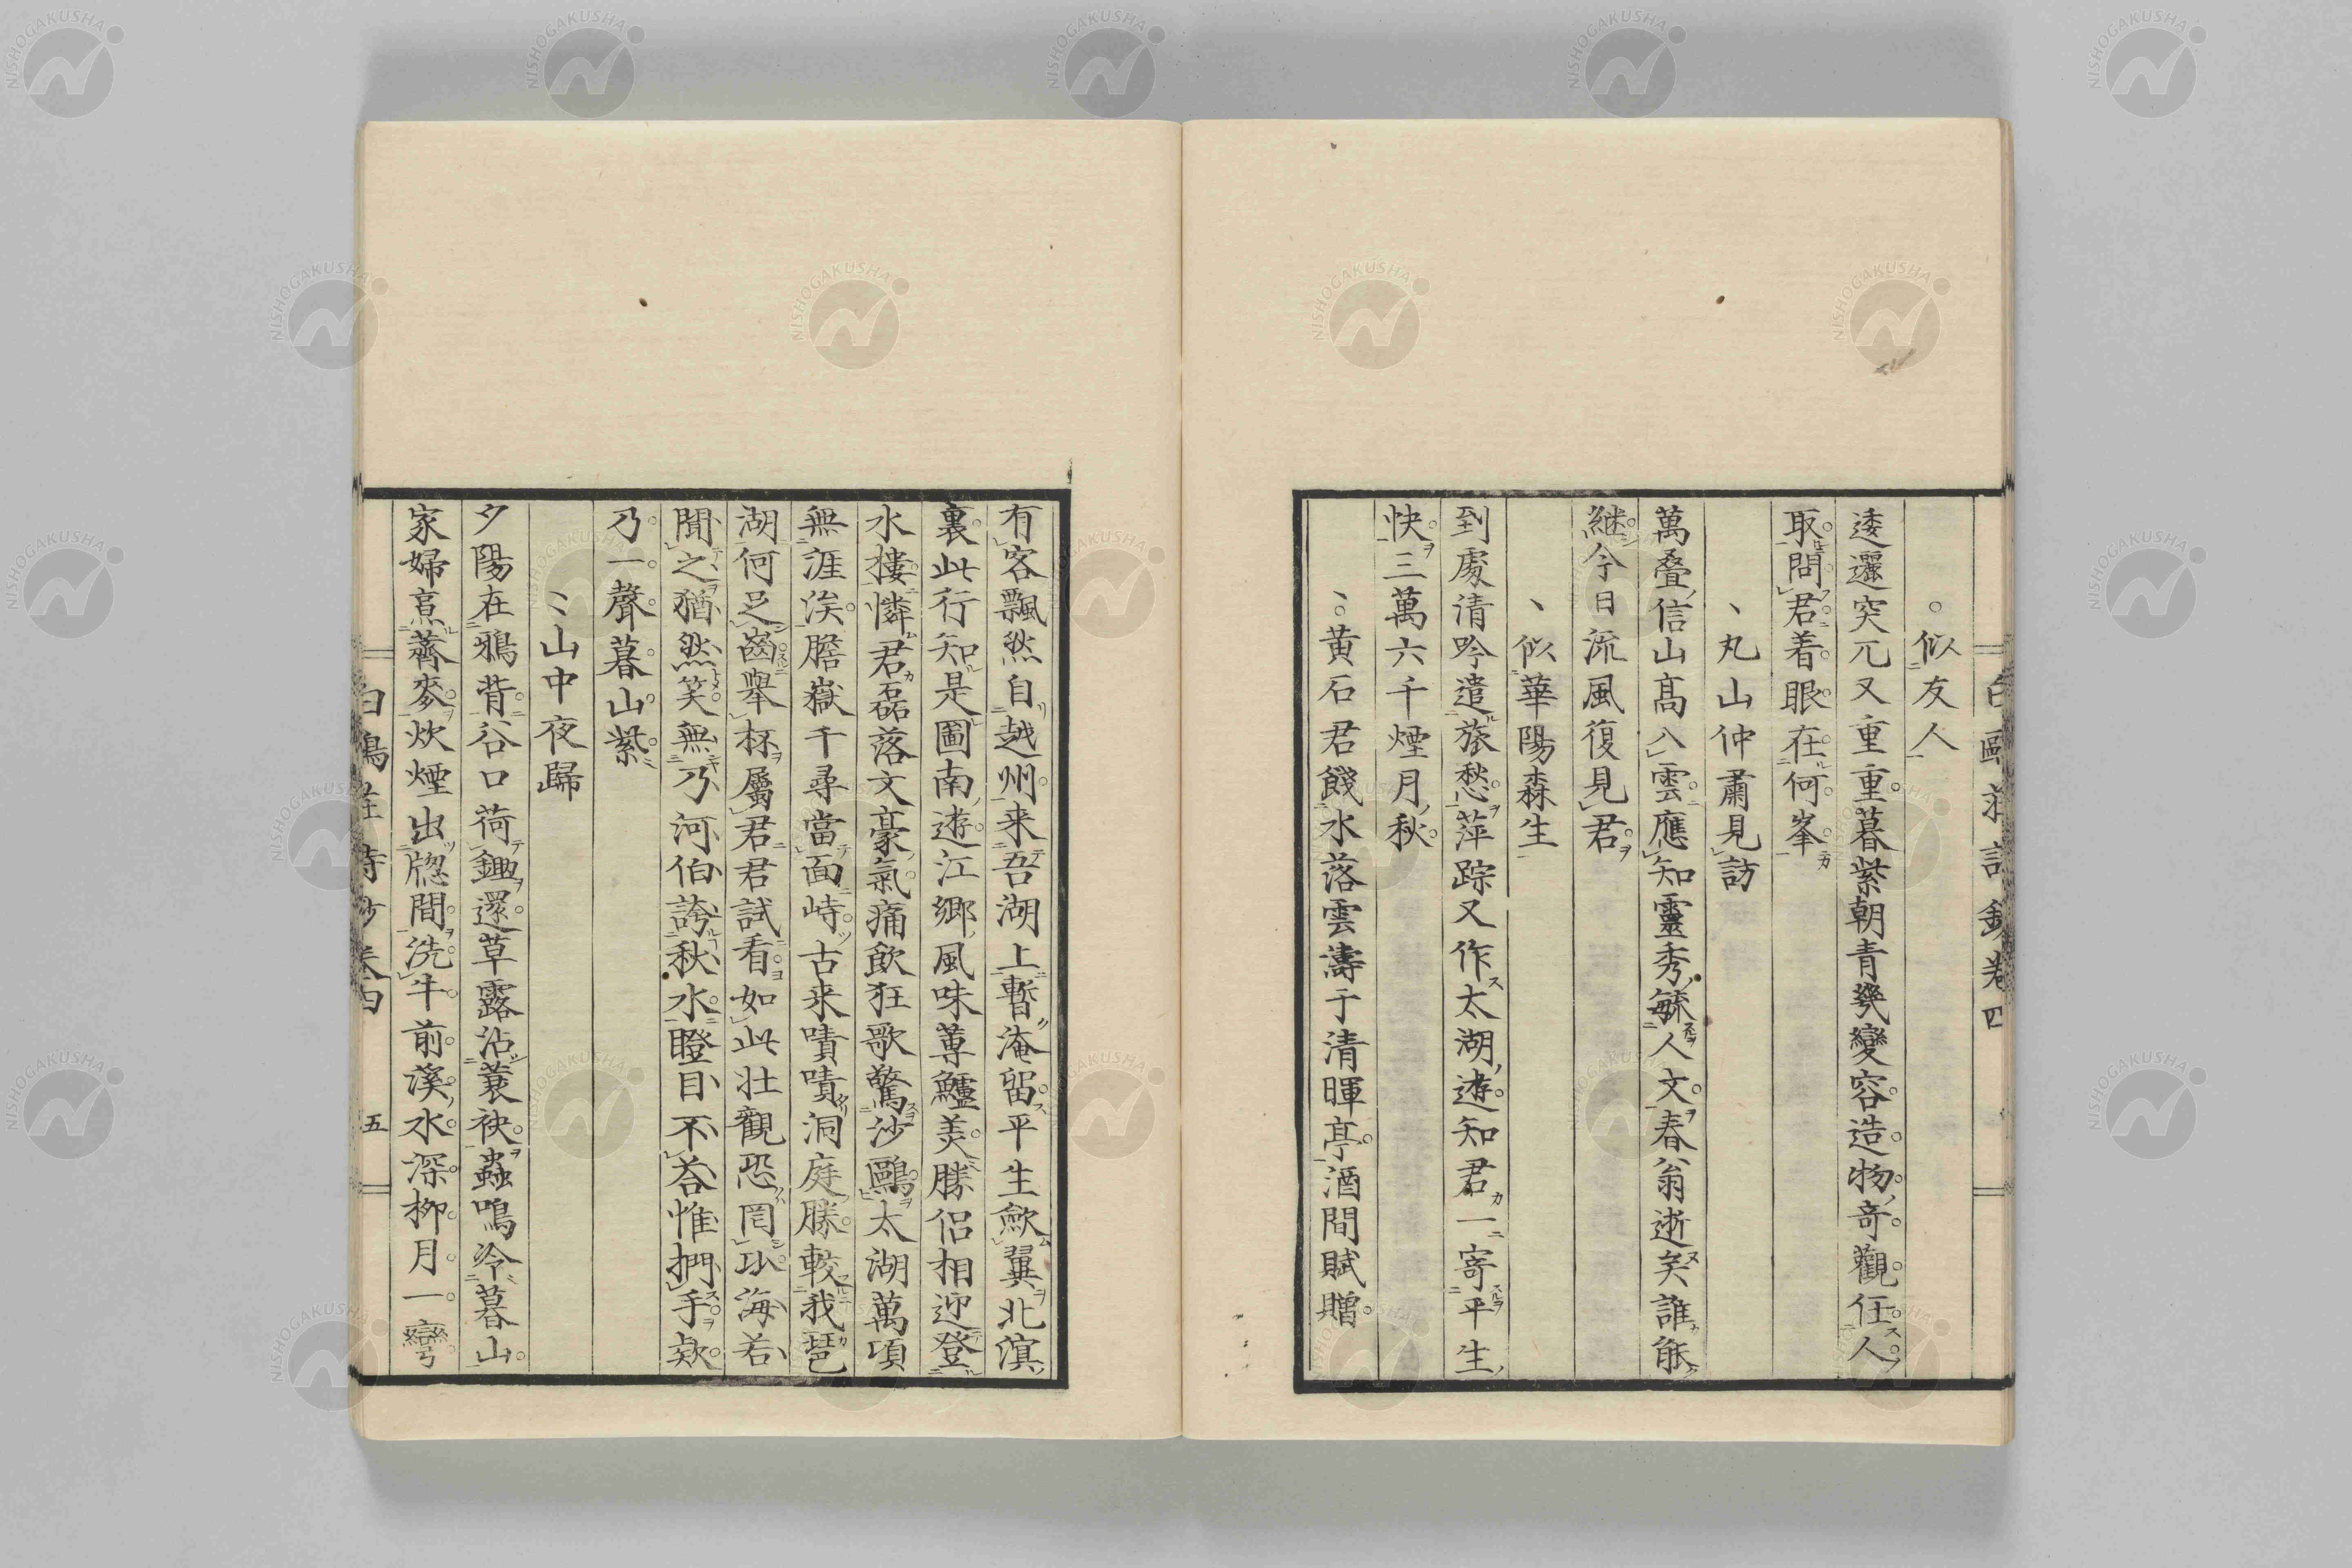 似友人
逶邐突兀又重重暮紫朝青幾變容造物奇觀任人
取問君着眼在何峯
丸山仲肅見訪
萬疊信山髙八雲應知靈秀毓人文春翁逝矣誰能
継今日流風復見君
似華陽森生
到處清吟遣旅愁萍踪又作太湖遊知君一寄平生
快三萬六千煙月秋
黄石君餞水落雲濤于清暉亭酒間賦贈
有客飄然自越州来吾湖上暫淹留平生歛翼北溟
裏此行知是圖南遊江鄉風味蓴鱸羙勝侶相迎登
水樓憐君磊落文豪氣痛飲狂歌驚沙鷗太湖萬頃
無涯涘膽嶽千尋當面峙古来嘖嘖洞庭勝較我琶
湖何足齒舉杯屬君君試看如此壮觀恐罔以海若
聞之猶然笑無乃河伯誇秋水瞪目不荅惟捫手欵
乃一聲暮山紫
山中夜歸
夕陽在鴉背谷口荷鋤還草露沾蓑袂蟲鳴冷暮山
家婦烹薺麥炊煙出牕間洗牛前溪水深柳月一彎
白鷗莊詩鈔卷四 五